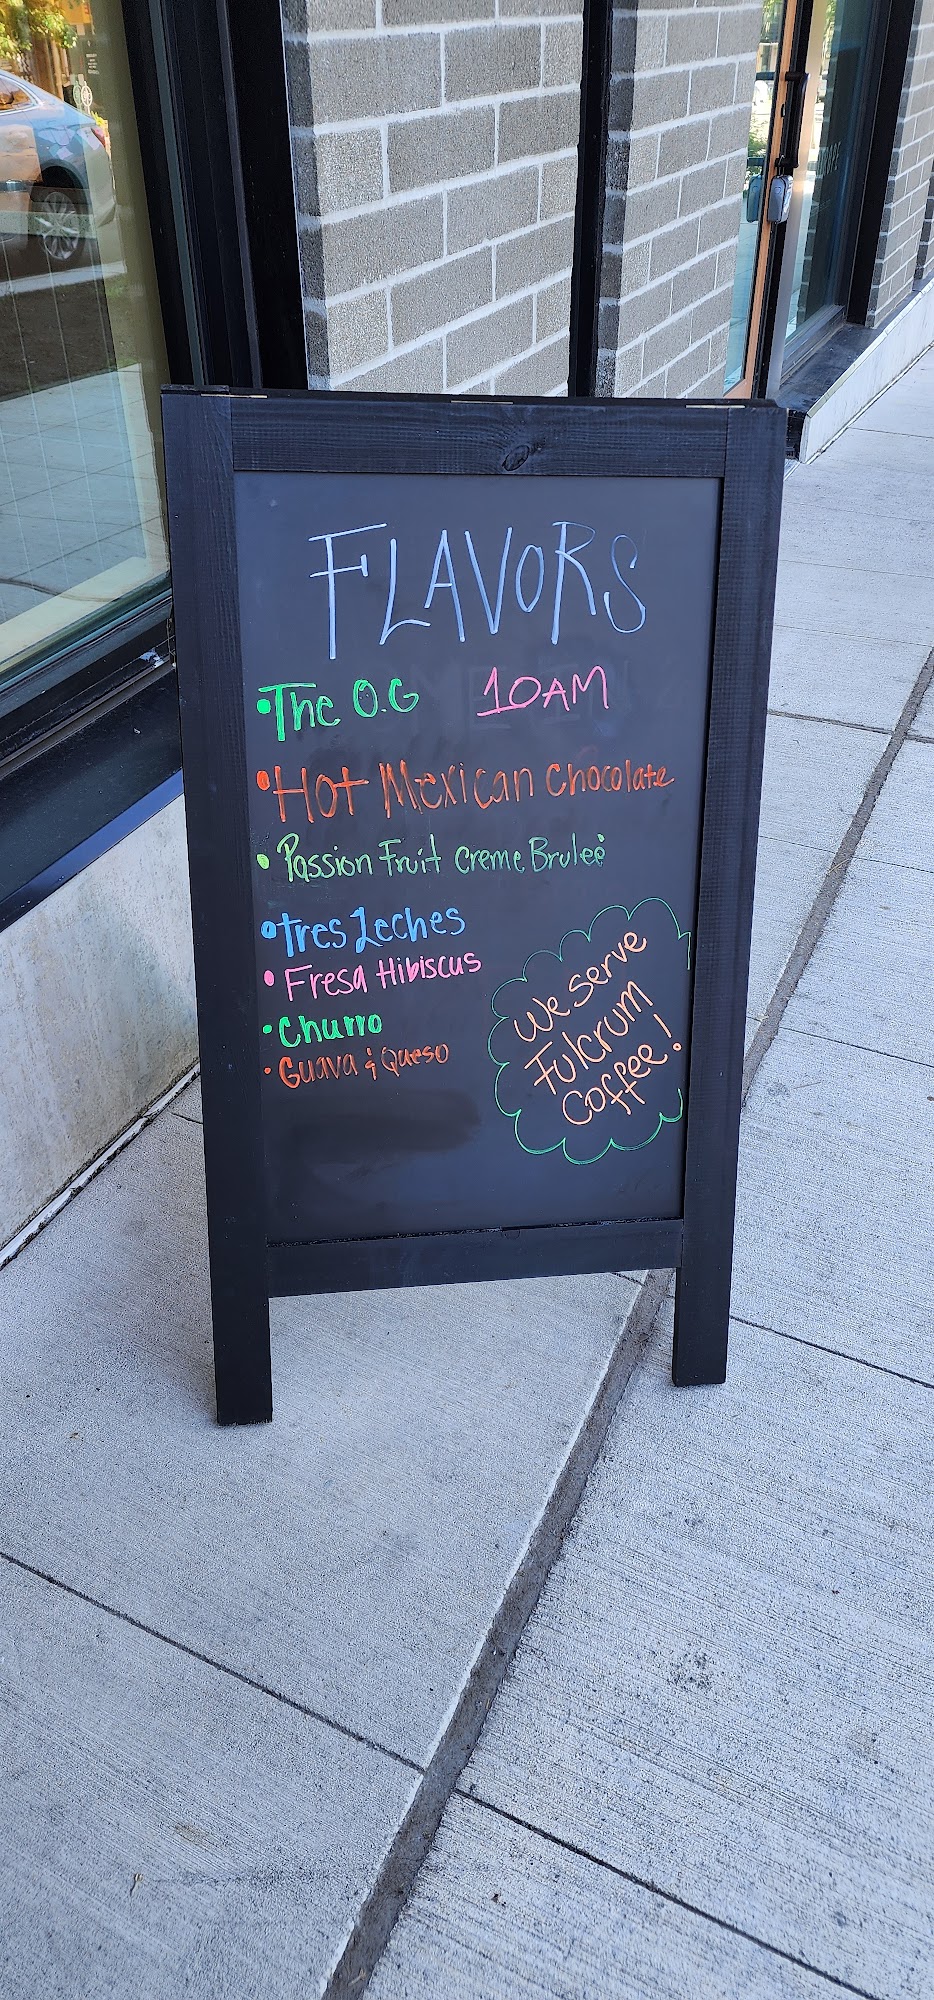 FLAVORS
•The O.G 10AM
•Hot Mexican Chocolate
•Passion Fruit Creme Brulee
•Tres Leches
•Fresa Hibiscus
•Churro
•Guava & Queso
We serve
Fulcrum
Coffee!